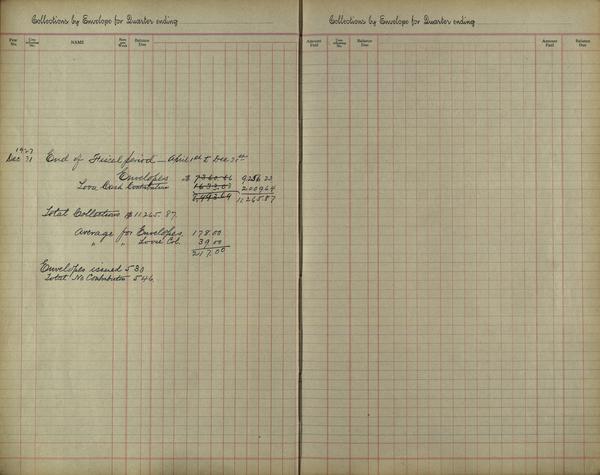 Collections by Envelope for Quarter ending
Pew No. Envelope No. NAME Sum per Week Balance Due
1927
Dec 31 End of Fiscal period — April 1st to Dec 31st
Envelopes $ 7360.66 9256 23
Loose Cash Contribution 1633.03 2009 64
11265.87
Total Collections $11265.87.
Average for Envelopes 178.00
" " Loose Col. 39 00
217.00
Envelopes issued 530
Total No Contributors 546.
Collections by Envelope for Quarter ending
Amount Paid Envelope No. Balance Due Amount Paid Balance Due